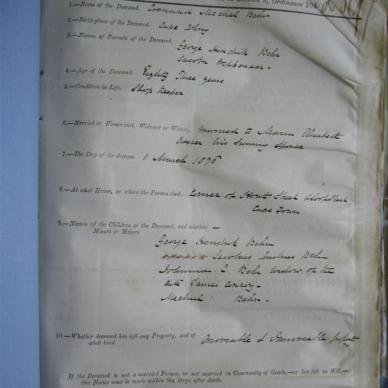 1.—Name of the Deceased. Michiel Behr
2.—Birth-place of the Deceased. Cape Colony
3.—Names of Parents of the Deceased.
George Hendrik Behr
Jacoba
4.—Age of the Deceased. Eighty Three years
5.—Condition in Life. Shop Keeper
6.—Married or Unmarried, Widower or Widow, married to Maria Elizabeth
his surviving spouse
7.—The Day of the decease. 1 March 1876
8.—At what House, or where the Person died. corner of Street
Cape Town
9.—Names of the Children of the Deceased, and whether
Minors or Majors
George Hendrik Behr
Jacobus Andries Behr
Johanna Behr widow of the
late James Conroy
Michiel Behr
10.—Whether deceased has left any Property, and of
what kind. Moveable & Immoveable property
If the Deceased is not a married Person, or not married in Community of Goods,—or has left no Will,—
this Notice must be made within Six Days after death.